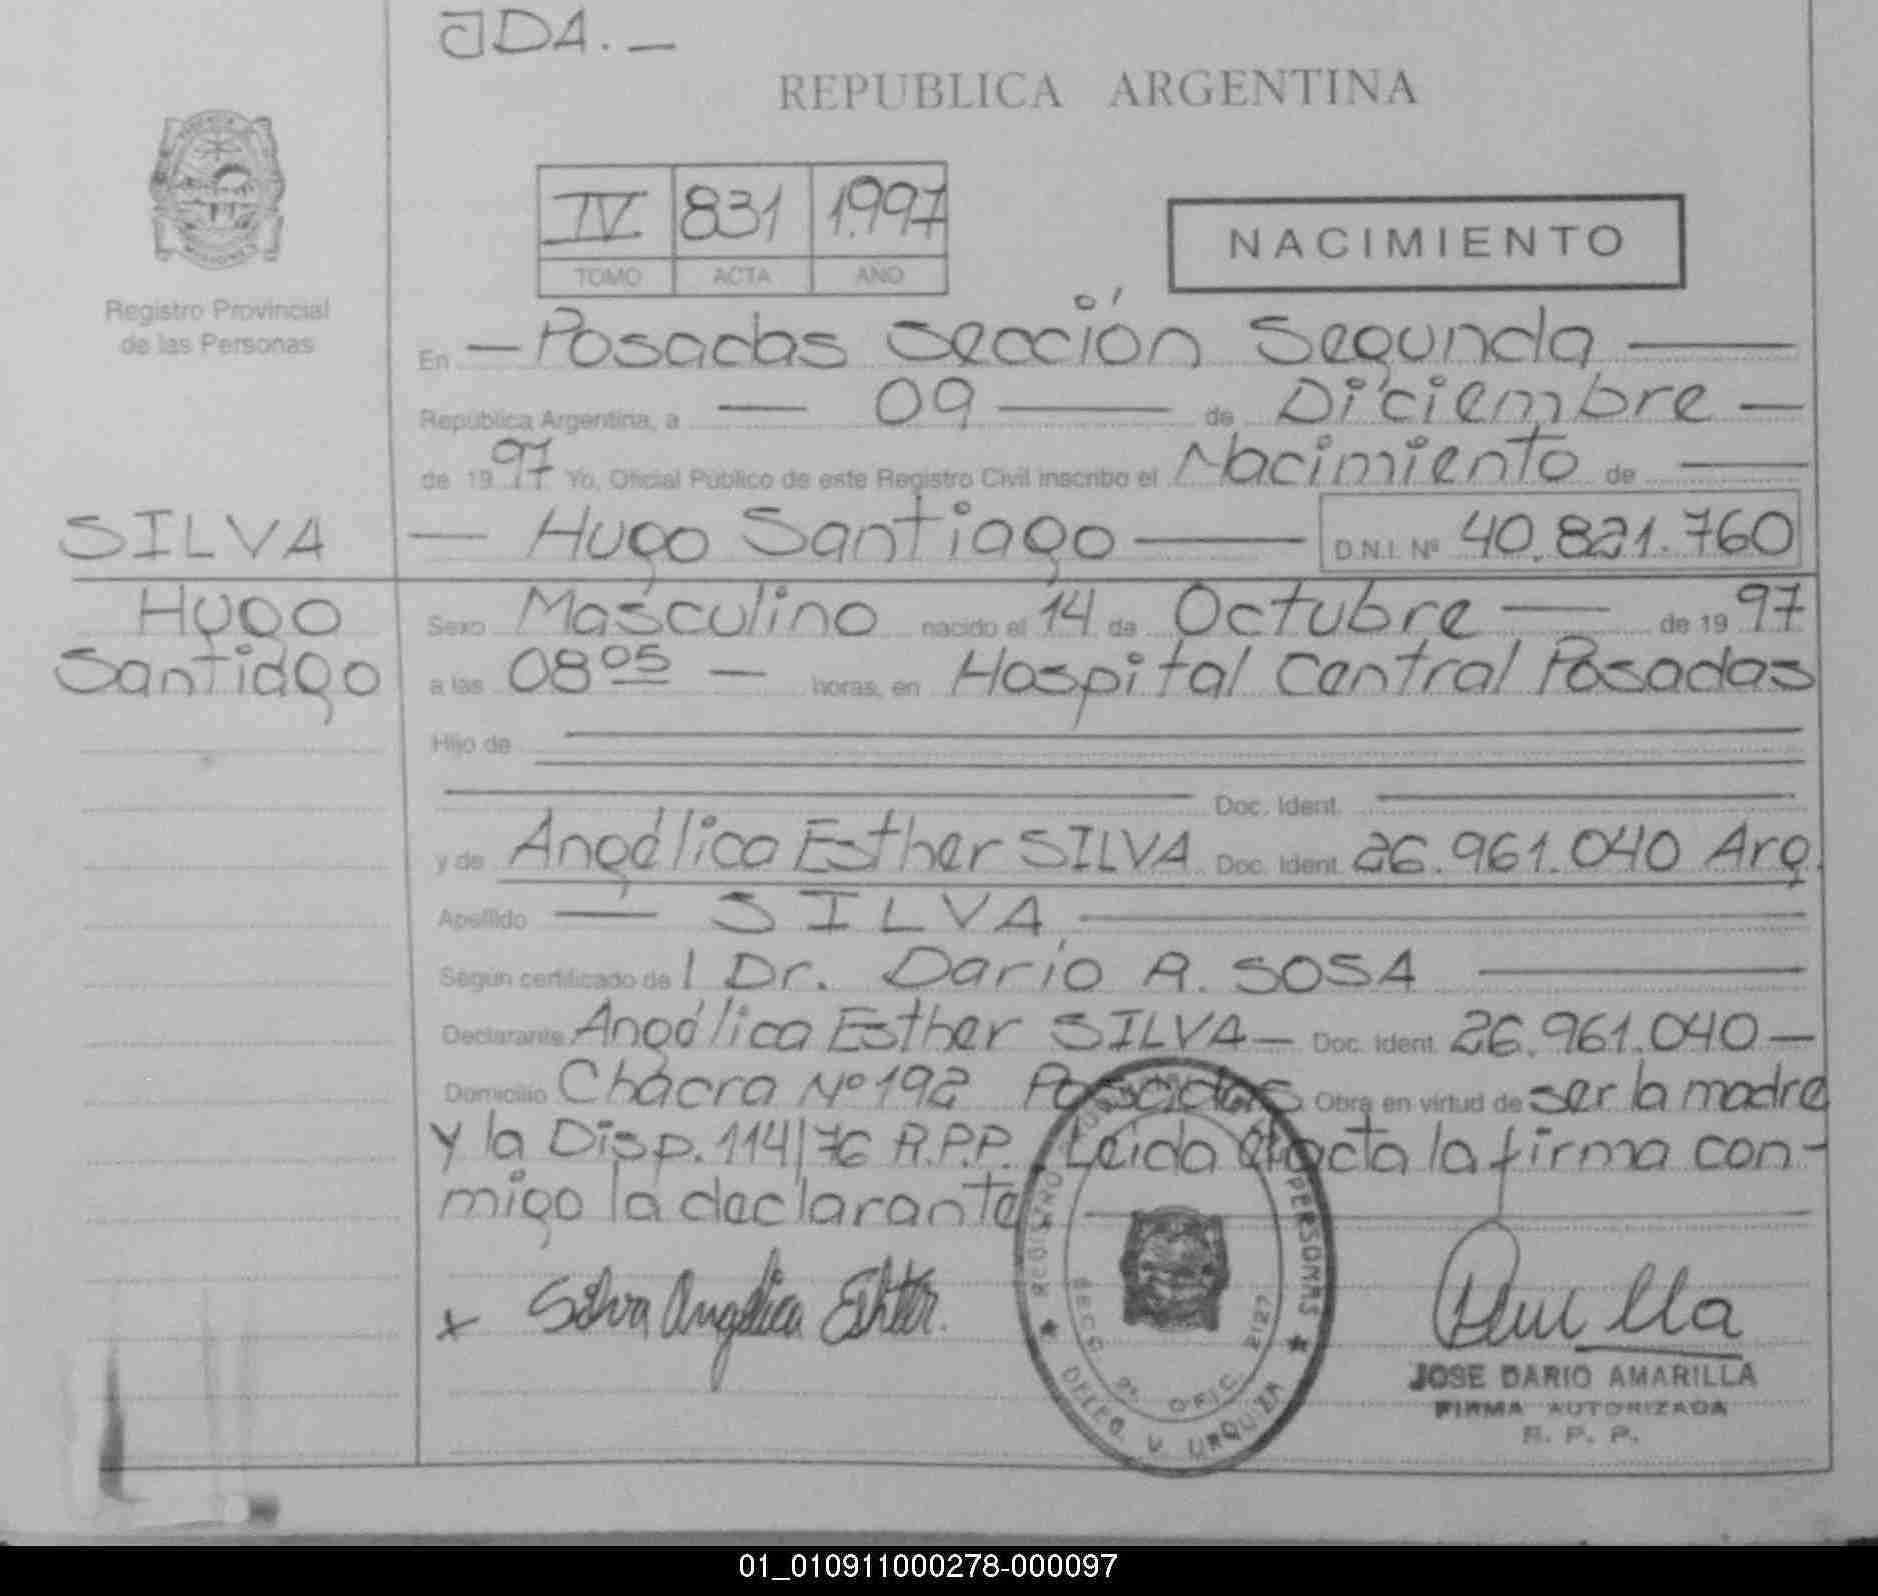 JDA.—
REPUBLICA ARGENTINA
IV 831 1.997
TOMO ACTA AÑO
NACIMIENTO
Registro Provincial
de las Personas
En — Posadas Sección Segunda —
República Argentina, a — 09 — de Diciembre —
de 1997 Yo, Oficial Público de este Registro Civil inscribo el Nacimiento de —
SILVA
— Hugo Santiago — D.N.I. Nº 40.821.760
Hugo
Santiago
Sexo Masculino nacido el 14 de Octubre — de 1997
a las 08 05 — horas, en Hospital Central Posadas
Hijo de
Doc. Ident.
y de Angélica Esther SILVA Doc. Ident. 26.961.040 Arg.
Apellido — SILVA
Según certificado de l Dr. Darío A. SOSA
Declarante Angélica Esther SILVA — Doc. Ident. 26.961.040 —
Domicilio Chacra Nº 192 Posadas Obra en virtud de ser la madre
y la Disp. 114/76 R.P.P. Leida el acta la firma con-
migo la declarante
x Silva Angelica Eshter.
REGISTRO PERSONAS
SECC. 2ª OFIC. 2127
DELEG. V. URQUIZA
JOSE DARIO AMARILLA
FIRMA AUTORIZADA
R. P. P.
01_010911000278-000097